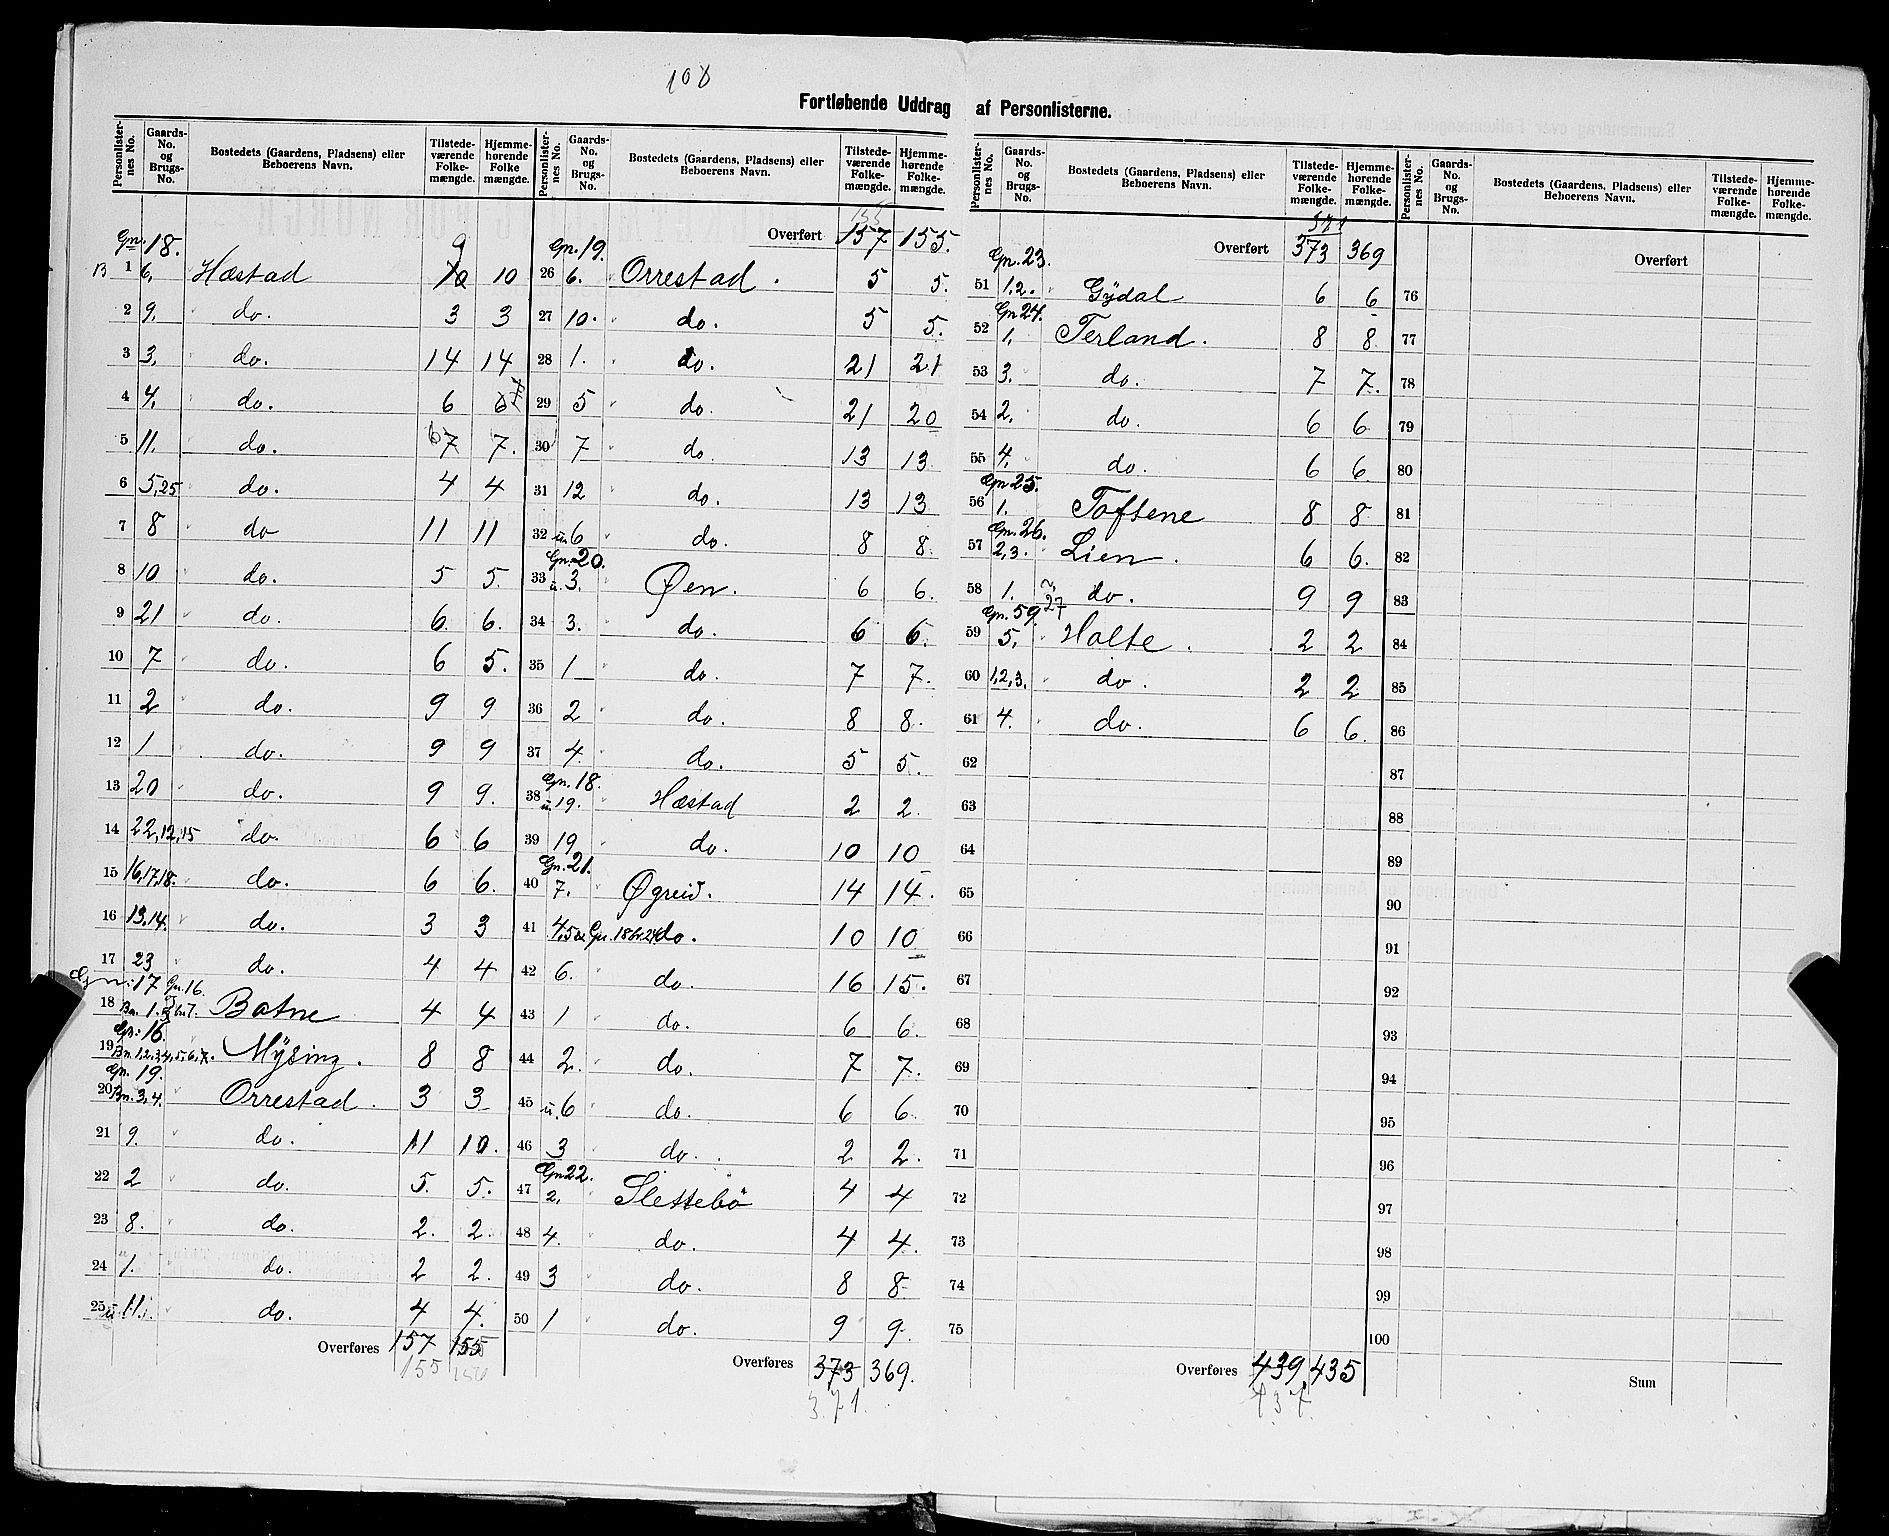 108
Fortløbende Uddrag af Personlisterne.
Personlisternes No. | Gaards-No. og Brugs-No. | Bostedets (Gaardens, Pladsens) eller Beboerens Navn. | Tilstedeværende Folkemængde. | Hjemmehørende Folkemængde.
Gn. 18.
13 1 | 6. | Hæstad | 10 9 | 10
2 | 9. | do. | 3 | 3
3 | 3. | do. | 14 | 14
4 | 4. | do. | 6 | 6 7
5 | 11. | do. | 7 6 | 7.
6 | 5,25 | do. | 4 | 4
7 | 8 | do | 11 | 11
8 | 10 | do. | 5 | 5.
9 | 21 | do. | 6. | 6.
10 | 7 | do. | 6 | 5.
11 | 2 | do. | 9 | 9
12 | 1 | do. | 9 | 9
13 | 20 | do. | 9 | 9.
14 | 22,12,15 | do. | 6 | 6
15 | 16,17,18. | do. | 6 | 6.
16 | 13,14. | do. | 3 | 3
17 | 23 | do. | 4 | 4
Gn: 17 Gn. 16.
18 | Bn. 1. og bn 7. | Botne | 4 | 4
Gn: 16.
19 | Bn. 1,2,3,4,5,6,7. | Mysing. | 8 | 8
Gn. 19.
20 | Bn. 3,4. | Orrestad. | 3 | 3
21 | 9. | do. | 11 | 10.
22 | 2 | do. | 5. | 5.
23 | 8. | do. | 2. | 2.
24 | 1. | do. | 2 | 2.
25 | u. 11. | do. | 4 | 4.
Overføres 157 155
155 156
Personlisternes No. | Gaards-No. og Brugs-No. | Bostedets (Gaardens, Pladsens) eller Beboerens Navn. | Tilstedeværende Folkemængde. | Hjemmehørende Folkemængde.
155
Overført 157 155.
Gn. 19.
26 | 6. | Orrestad . | 5 | 5.
27 | 10. | do. | 5 | 5.
28 | 1. | do. | 21 | 21
29 | 5 | do. | 21 | 20
30 | 7 | do. | 13 | 13.
31 | 12 | do. | 13 | 13
32 | u. 6 | do. | 8 | 8.
Gn. 20.
33 | u. 3. | Øen. | 6 | 6.
34 | 3. | do. | 6 | 6.
35 | 1 | do. | 7 | 7.
36 | 2 | do. | 8 | 8.
37 | 4. | do. | 5 | 5.
Gn. 18.
38 | u. 19. | Hæstad | 2 | 2.
39 | 19 | do. | 10 | 10
Gn. 21.
40 | 7. | Øgreid. | 14 | 14.
41 | 4,5 & Gn. 18 br. 24 | do. | 10 | 10
42 | 6. | do. | 16 | 15.
43 | 1 | do. | 6 | 6.
44 | 2. | do. | 7 | 7.
45 | u. 6 | do. | 6 | 6.
46 | 3 | do. | 2 | 2.
Gn 22.
47 | 2. | Slettebö | 4 | 4
48 | 4. | do. | 4 | 4.
49 | 3 | do. | 8 | 8
50 | 1 | do. | 9 | 9.
Overføres 373 369.
371
Personlisternes No. | Gaards-No. og Brugs-No. | Bostedets (Gaardens, Pladsens) eller Beboerens Navn. | Tilstedeværende Folkemængde. | Hjemmehørende Folkemængde.
371
Overført 373 369
Gn. 23.
51 | 1,2. | Gydal | 6 | 6
Gn 24.
52 | 1. | Terland. | 8 | 8
53 | 3. | do. | 7 | 7.
54 | 2. | do. | 6 | 6
55 | 4. | do. | 6 | 6.
Gn 25.
56 | 1. | Toftene | 8 | 8
Gn. 26.
57 | 2,3. | Lien . | 6 | 6.
58 | 1. 27 | do. | 9 | 9
Gn. 59.
59 | 5. | Holte . | 2 | 2
60 | 1,2,3. | do. | 2 | 2
61 | 4. | do. | 6 | 6.
62
63
64
65
66
67
68
69
70
71
72
73
74
75
Overføres 439 435
437
Personlisternes No. | Gaards-No. og Brugs-No. | Bostedets (Gaardens, Pladsens) eller Beboerens Navn. | Tilstedeværende Folkemængde. | Hjemmehørende Folkemængde.
Overført
76
77
78
79
80
81
82
83
84
85
86
87
88
89
90
91
92
93
94
95
96
97
98
99
100
Sum